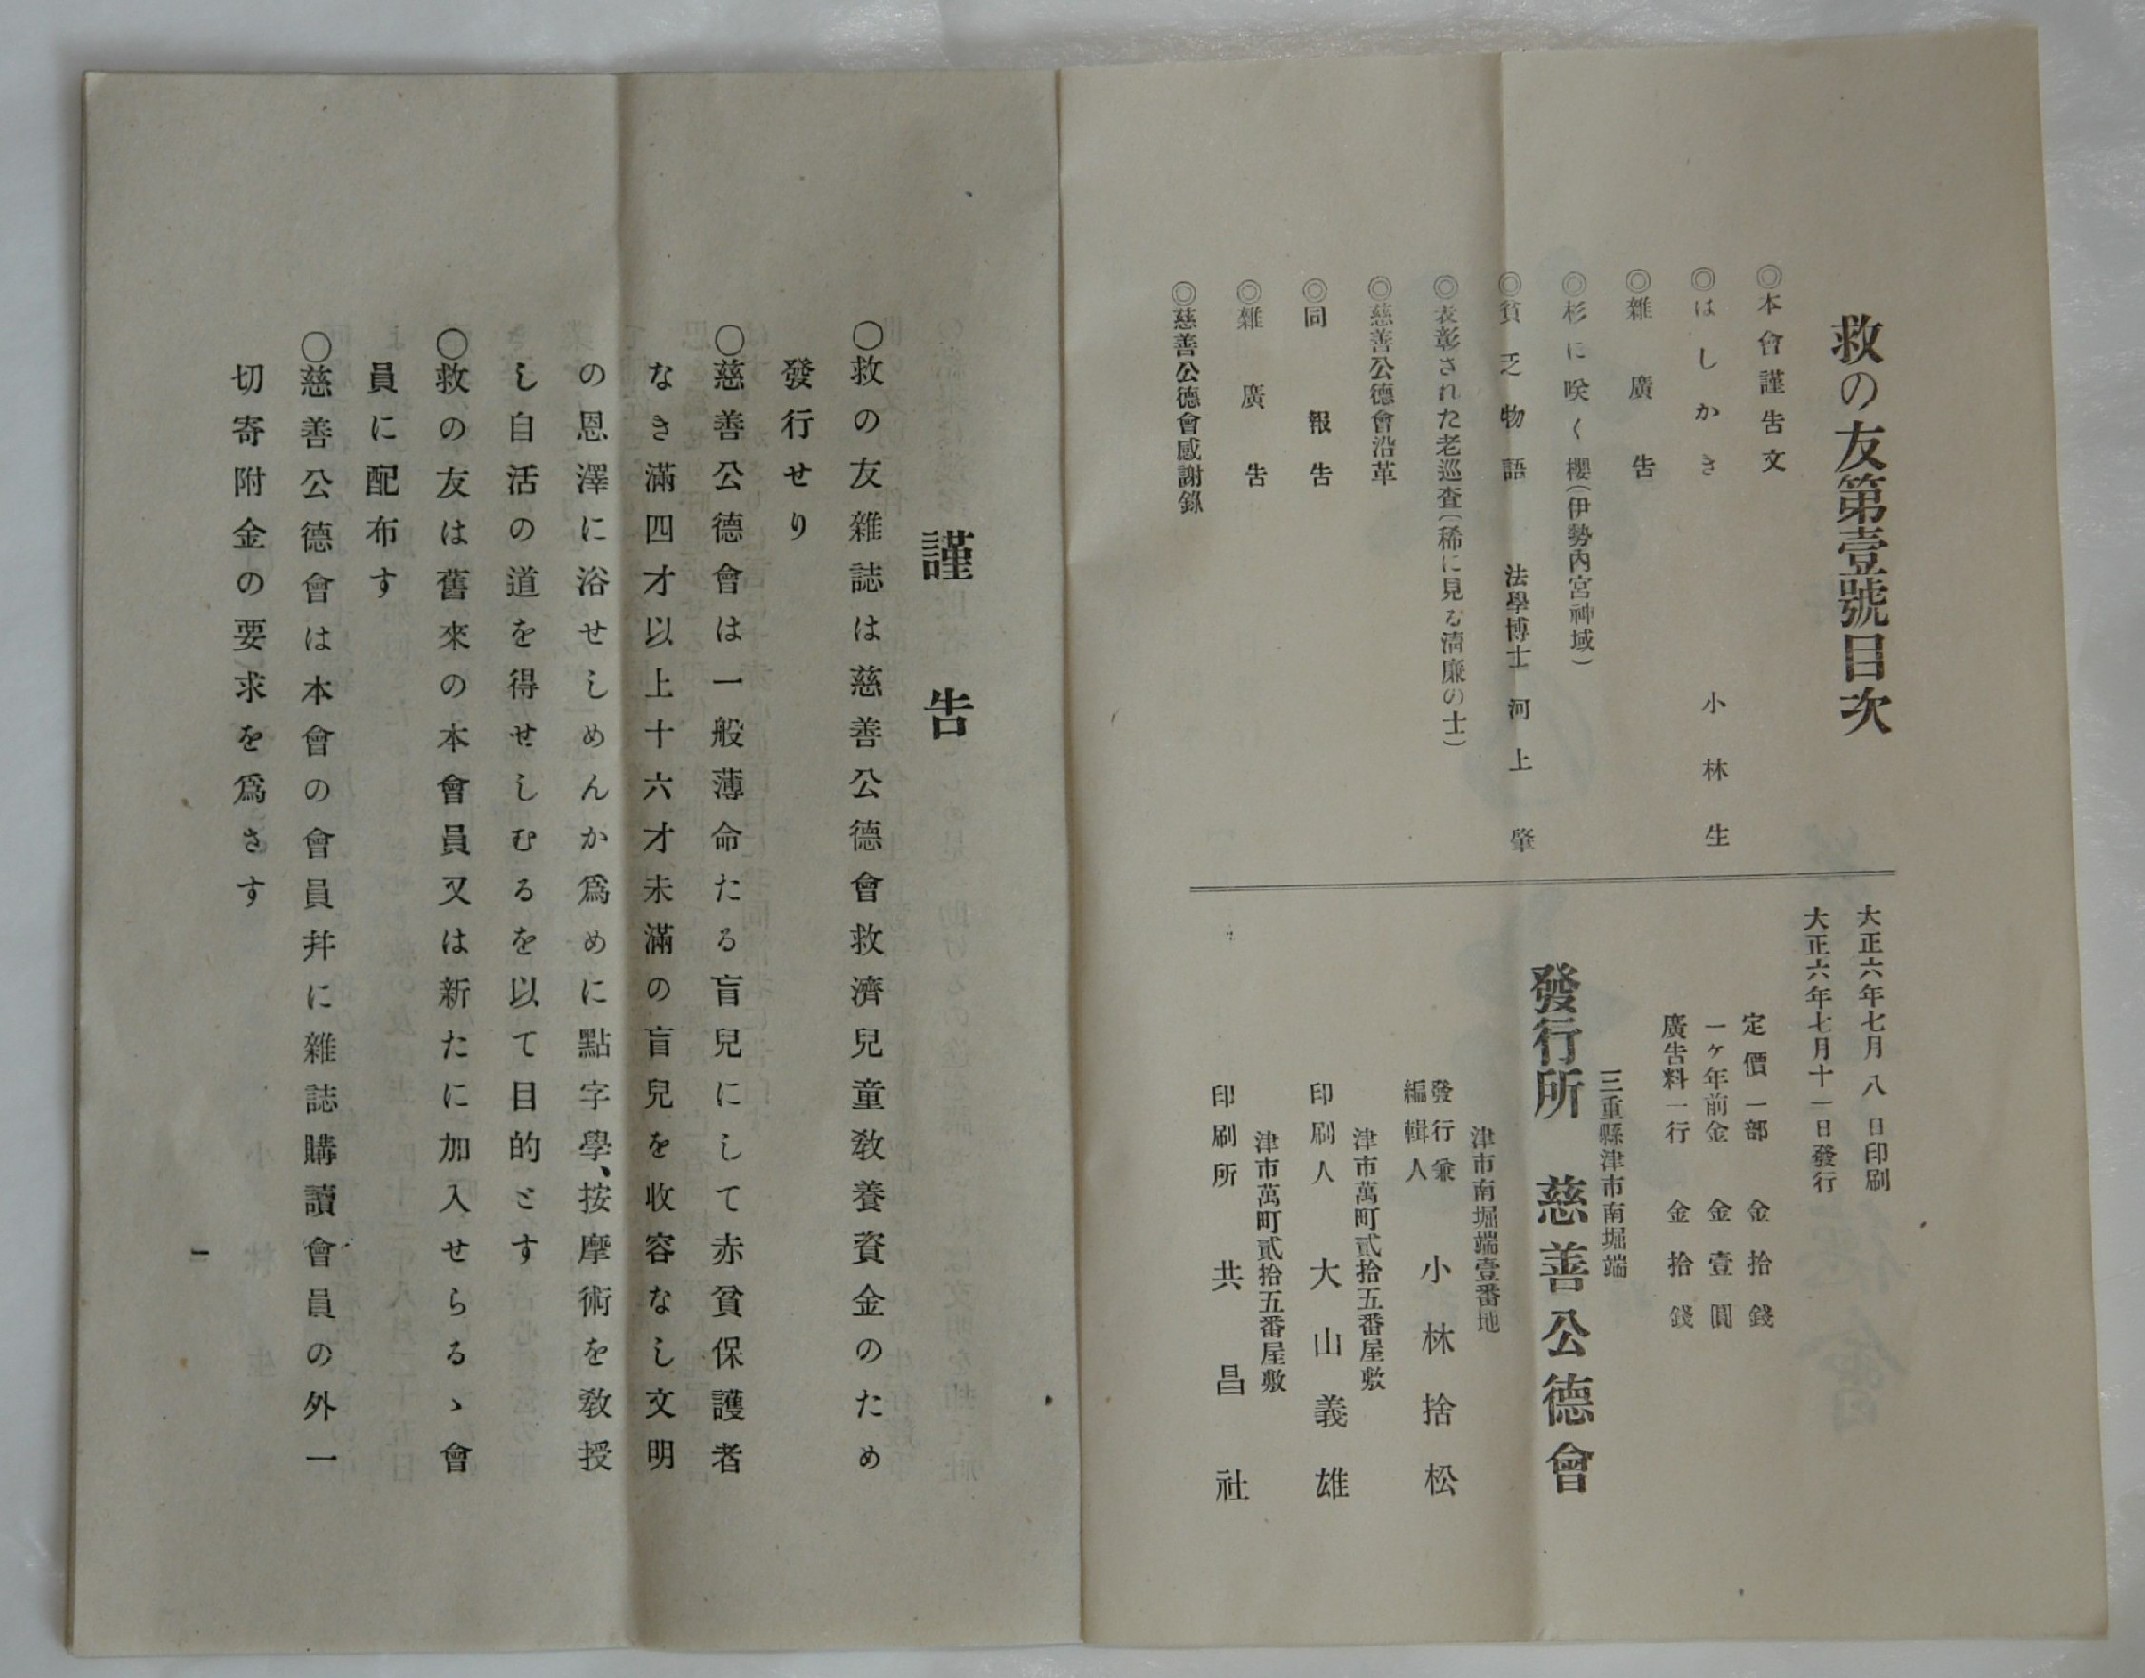 救の友第壹號目次
◎本會謹告文
◎はしかき 小林生
◎雜廣告
◎杉に咲く櫻(伊勢內宮神域)
◎貧乏物語 法學博士 河上肇
◎表彰された老巡査(稀に見る淸廉の士)
◎慈善公德會沿革
◎同報告
◎雜廣告
◎慈善公德會感謝錄
大正六年七月八日印刷
大正六年七月十一日發行
定價一部 金拾錢
一ヶ年前金 金壹圓
廣告料一行 金拾錢
三重縣津市南堀端
發行所 慈善公德會
津市南堀端壹番地
發行兼編輯人 小林捨松
津市萬町貳拾五番屋敷
印刷人 大山義雄
津市萬町貳拾五番屋敷
印刷所 共昌社
謹告
○救の友雜誌は慈善公德會救濟兒童敎養資金のため
發行せり
○慈善公德會は一般薄命たる盲兒にして赤貧保護者
なき滿四才以上十六才未滿の盲兒を收容なし文明
の恩澤に浴せしめんか爲めに點字學、按摩術を敎授
し自活の道を得せしむるを以て目的とす
○救の友は舊來の本會員又は新たに加入せらるゝ會
員に配布す
○慈善公德會は本會の會員幷に雜誌購讀會員の外一
切寄附金の要求を爲さす
一